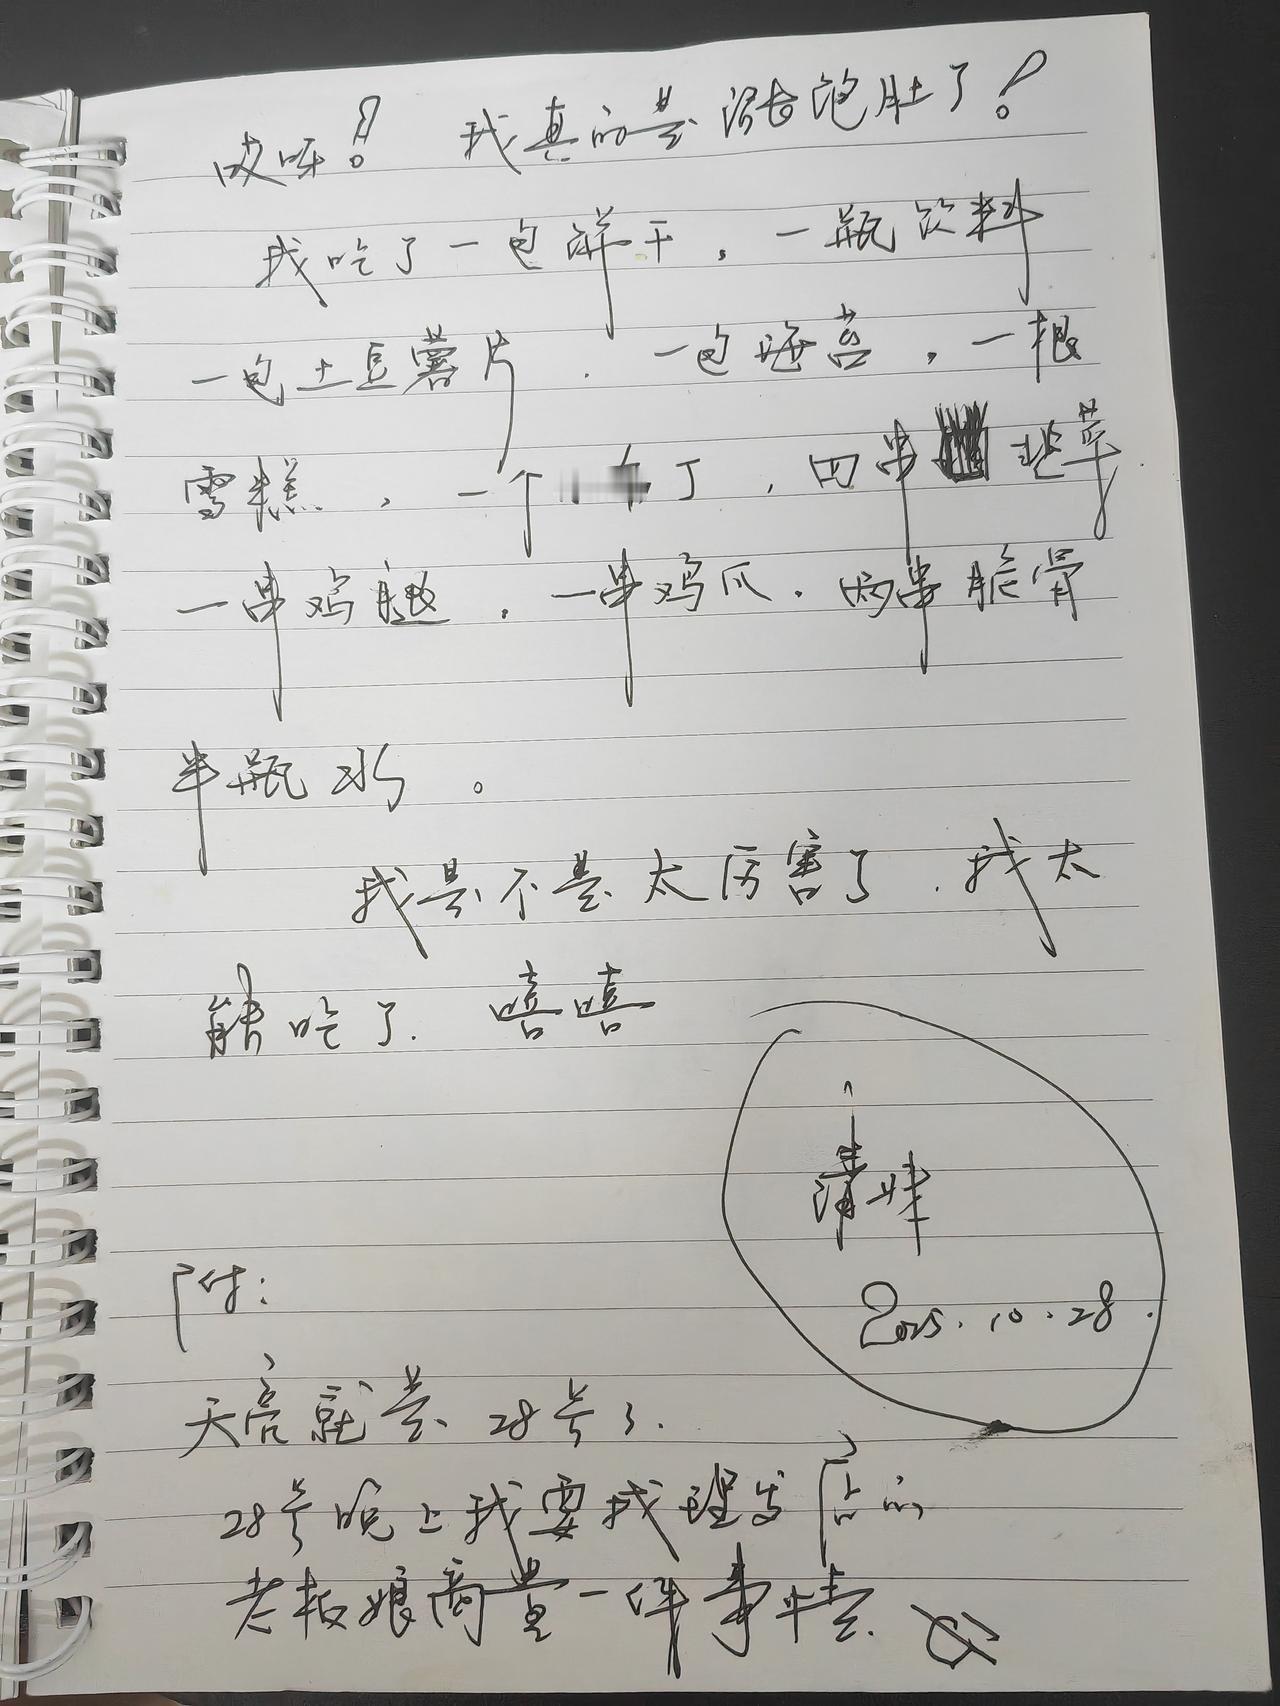 哎呀！我真的是涨饱肚了！
我吃了一包饼干，一瓶饮料
一包土豆薯片．一包海苔，一根
雪糕，一个布丁，四串韭菜
一串鸡腿，一串鸡爪．两串脆骨
半瓶水。
我是不是太厉害了．我太
能吃了．嘻嘻
清
2025.10.28.
附：
天亮就是28号了．
28号晚上我要找理发店的
老板娘商量一件事情．